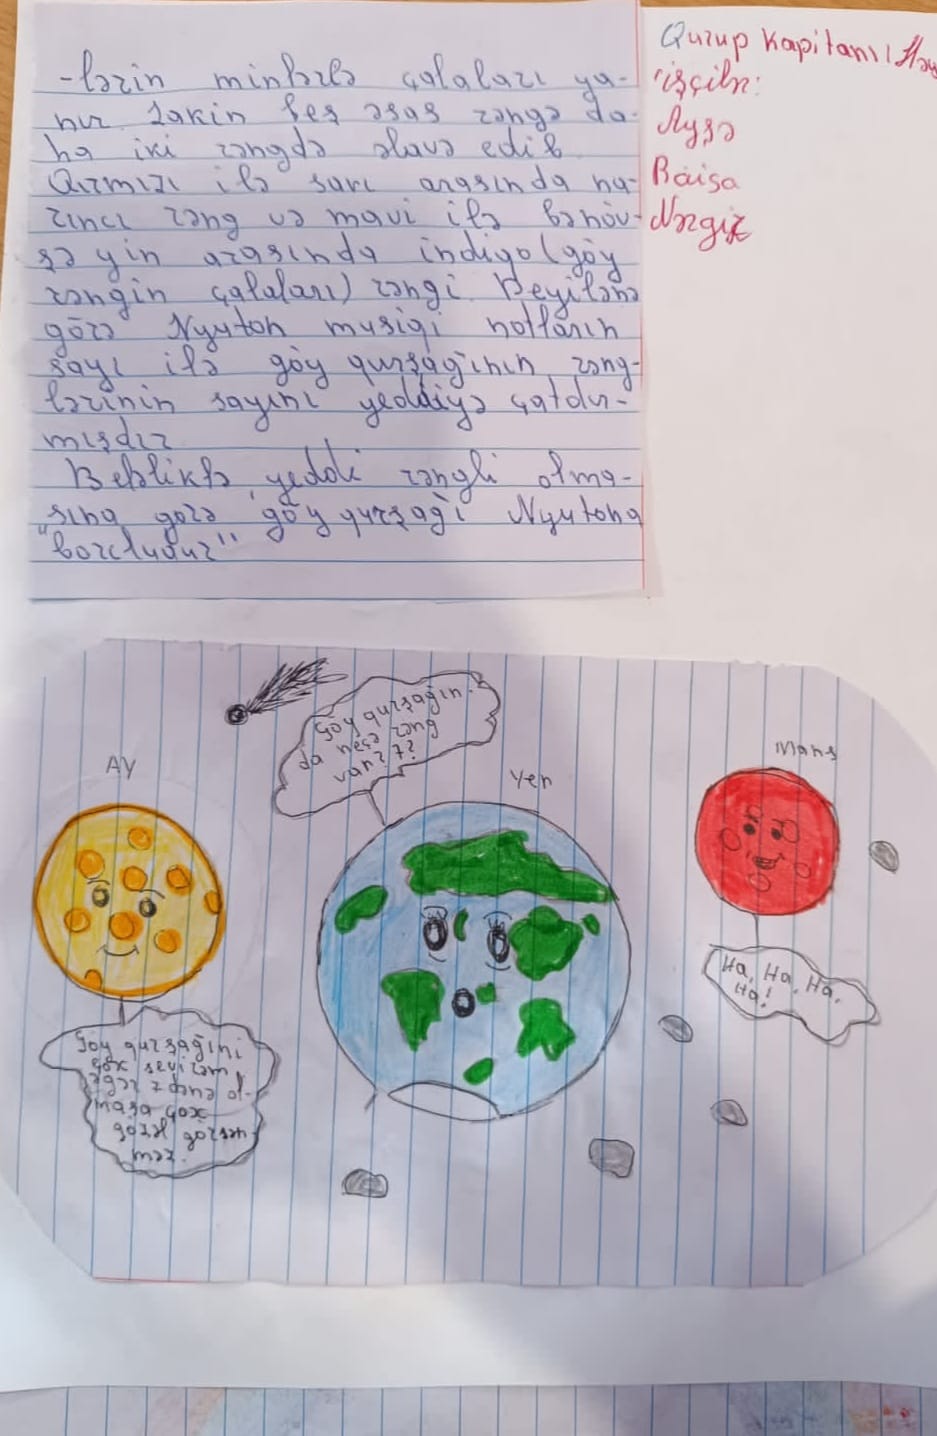 -lərin minlərlə çalaları ya-
nır. Lakin beş əsas rəngə da-
ha iki rəngdə əlavə edib
Qırmızı ilə sarı arasında na-
rıncı rəng və mavi ilə bənöv-
şəyin arasında indigo (göy
rəngin çalaları) rəngi. Deyilənə
görə Nyuton musiqi notların
sayı ilə göy qurşağının rəng-
lərinin sayını yeddiyə çatdır-
mışdır
Beləliklə, yeddi rəngli olma-
sına gorə göy qurşağı Nyutona
"borcludur"
Qurup Kapitanı:
işçilər:
Ayşə
Raisa
Nərgiz
Göy qurşağın-
da neçə rəng
var? 7?
AY
Yer
Mars
Göy qurşağıni
çox sevirəm
əgər 7 dənə ol-
masa çox
gözəl görsən-
məz.
Ha, Ha, Ha,
Ha!